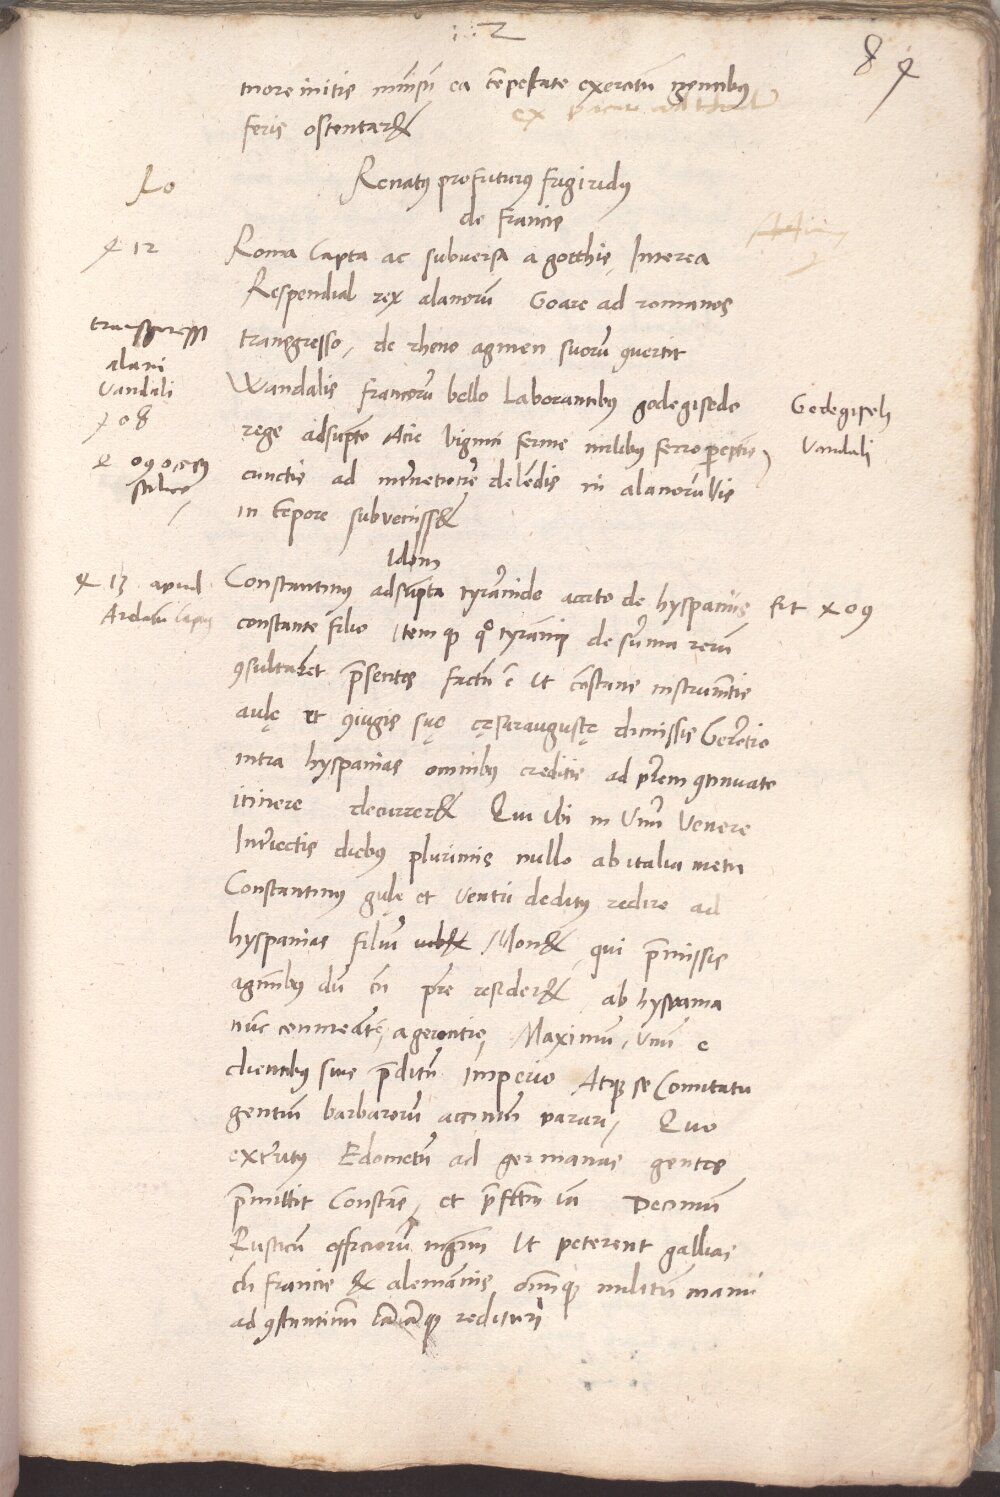 112
84
more initis nimirum ea tempestate exercitu gentibus
feris ostentar&
Renatus profuturus frigiridus
de Francis
412
Roma Capta ac subversa a gotthis, Interea
Respendial rex alanorū Goare ad romanos
transgresso, de rheno agmen suorū ꝯvertit
transgressi
alani
Vandali
408
Wandalis francorū bello Laborantibus godegisedo
rege adsūpto Acie viginti ferme milibus ferro peptis
cunctis ad interneti onē delēdis ni alanorū vis
in tēpore subveniss&
Godegisel
Vandali
Idem
413 apud
Arelatū Captus
Constantinus adsūpta tyrānide accito de hyspaniis
constante filio Itemqꝫ qͦ tyranni de sūma rerū
ꝯsultaret p̄sentes factū ē Ut cōstans instrumētis
aulę et ꝯiugis suę cęsaraugustę dimissis Gerōtio
intra hyspanias omnibus creditis ad pr̄em ꝯtinuato
itinere decurrer& Qui Ubi in Unū Venere
Interiectis diebus plurimis nullo ab italia metu
Constantinus gulę et Ventri deditus redire ad
hyspanias filiū Mon&, qui p̄missis
agminibus dū cū pr̄e resider& ab hyspania
nūc commeātes, a gerontio, Maximū, Unū e
clientibus suis p̄ditū Imperio Atqꝫ se Comitatu
gentiū barbarorū accinctū parari, Quo
exterritus Edometū ad germanas gentes
p̄mittit Constās, et p̄fectū iā Decimiū
Rusticū officiorū mgr̄m Ut peterent gallias
cū francis & alemānis omniqꝫ militū manu
ad ꝯstantinū iāiāqꝫ redituri